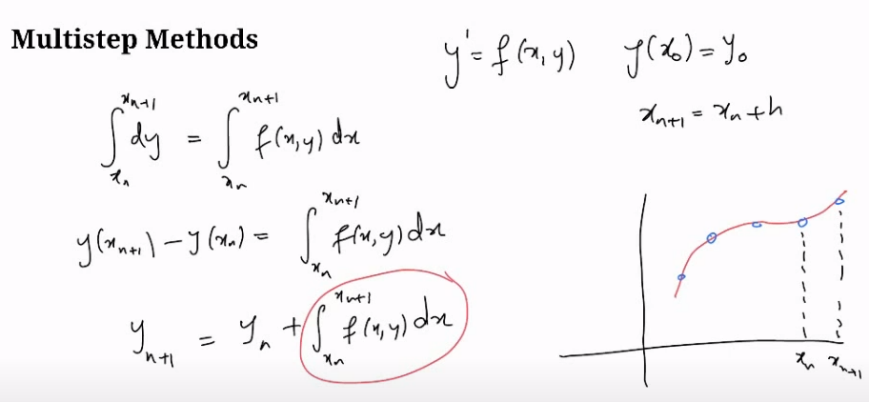 Multistep Methods
y' = f(x, y)   y(x₀) = y₀
xₙ₊₁ = xₙ + h
∫_{xₙ}^{xₙ₊₁} dy = ∫_{xₙ}^{xₙ₊₁} f(x, y) dx
y(xₙ₊₁) - y(xₙ) = ∫_{xₙ}^{xₙ₊₁} f(x, y) dx
yₙ₊₁ = yₙ + ∫_{xₙ}^{xₙ₊₁} f(x, y) dx
xₙ xₙ₊₁